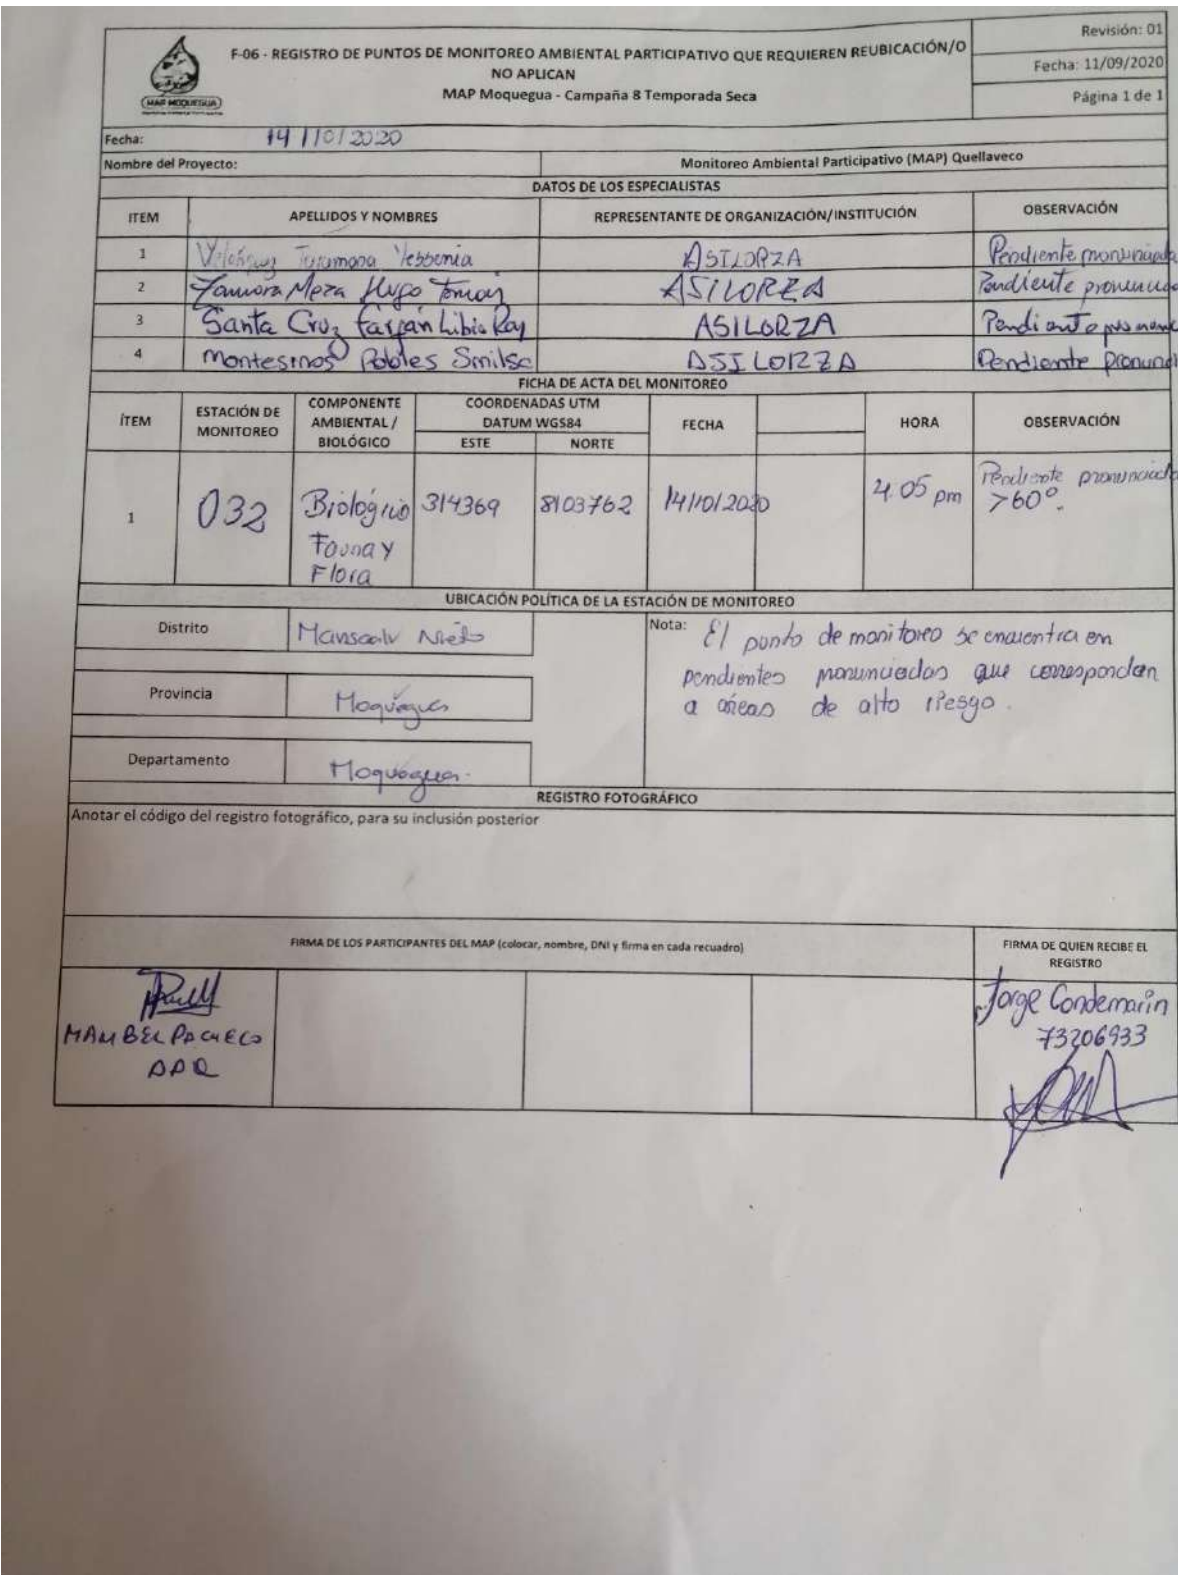 Revisión: 01
F-06 - REGISTRO DE PUNTOS DE MONITOREO AMBIENTAL PARTICIPATIVO QUE REQUIEREN REUBICACIÓN/O
NO APLICAN
Fecha: 11/09/2020
MAP Moquegua - Campaña 8 Temporada Seca
Página 1 de 1
MAP MOQUEGUA
Fecha: 14/10/2020
Nombre del Proyecto: Monitoreo Ambiental Participativo (MAP) Quellaveco
DATOS DE LOS ESPECIALISTAS
ITEM APELLIDOS Y NOMBRES REPRESENTANTE DE ORGANIZACIÓN/INSTITUCIÓN OBSERVACIÓN
1 Yessenia ASILORZA Pendiente
2 Zamora Meza Hugo ASILORZA Pendiente
3 Santa Cruz ASILORZA Pendiente
4 Montesinos ASILORZA Pendiente
FICHA DE ACTA DEL MONITOREO
ÍTEM ESTACIÓN DE MONITOREO COMPONENTE AMBIENTAL / BIOLÓGICO COORDENADAS UTM DATUM WGS84 FECHA HORA OBSERVACIÓN
ESTE NORTE
1 032 Biológico Fauna y Flora 314369 8103762 14/10/2020 4:05 pm Pendiente >60°.
UBICACIÓN POLÍTICA DE LA ESTACIÓN DE MONITOREO
Distrito
Provincia Moquegua
Departamento Moquegua.
Nota: El punto de monitoreo se encuentra en
pendientes pronunciadas que correspondan
a áreas de alto riesgo.
REGISTRO FOTOGRÁFICO
Anotar el código del registro fotográfico, para su inclusión posterior
FIRMA DE LOS PARTICIPANTES DEL MAP (colocar, nombre, DNI y firma en cada recuadro)
FIRMA DE QUIEN RECIBE EL
REGISTRO
PACHECO
Jorge Condemarín
73206933